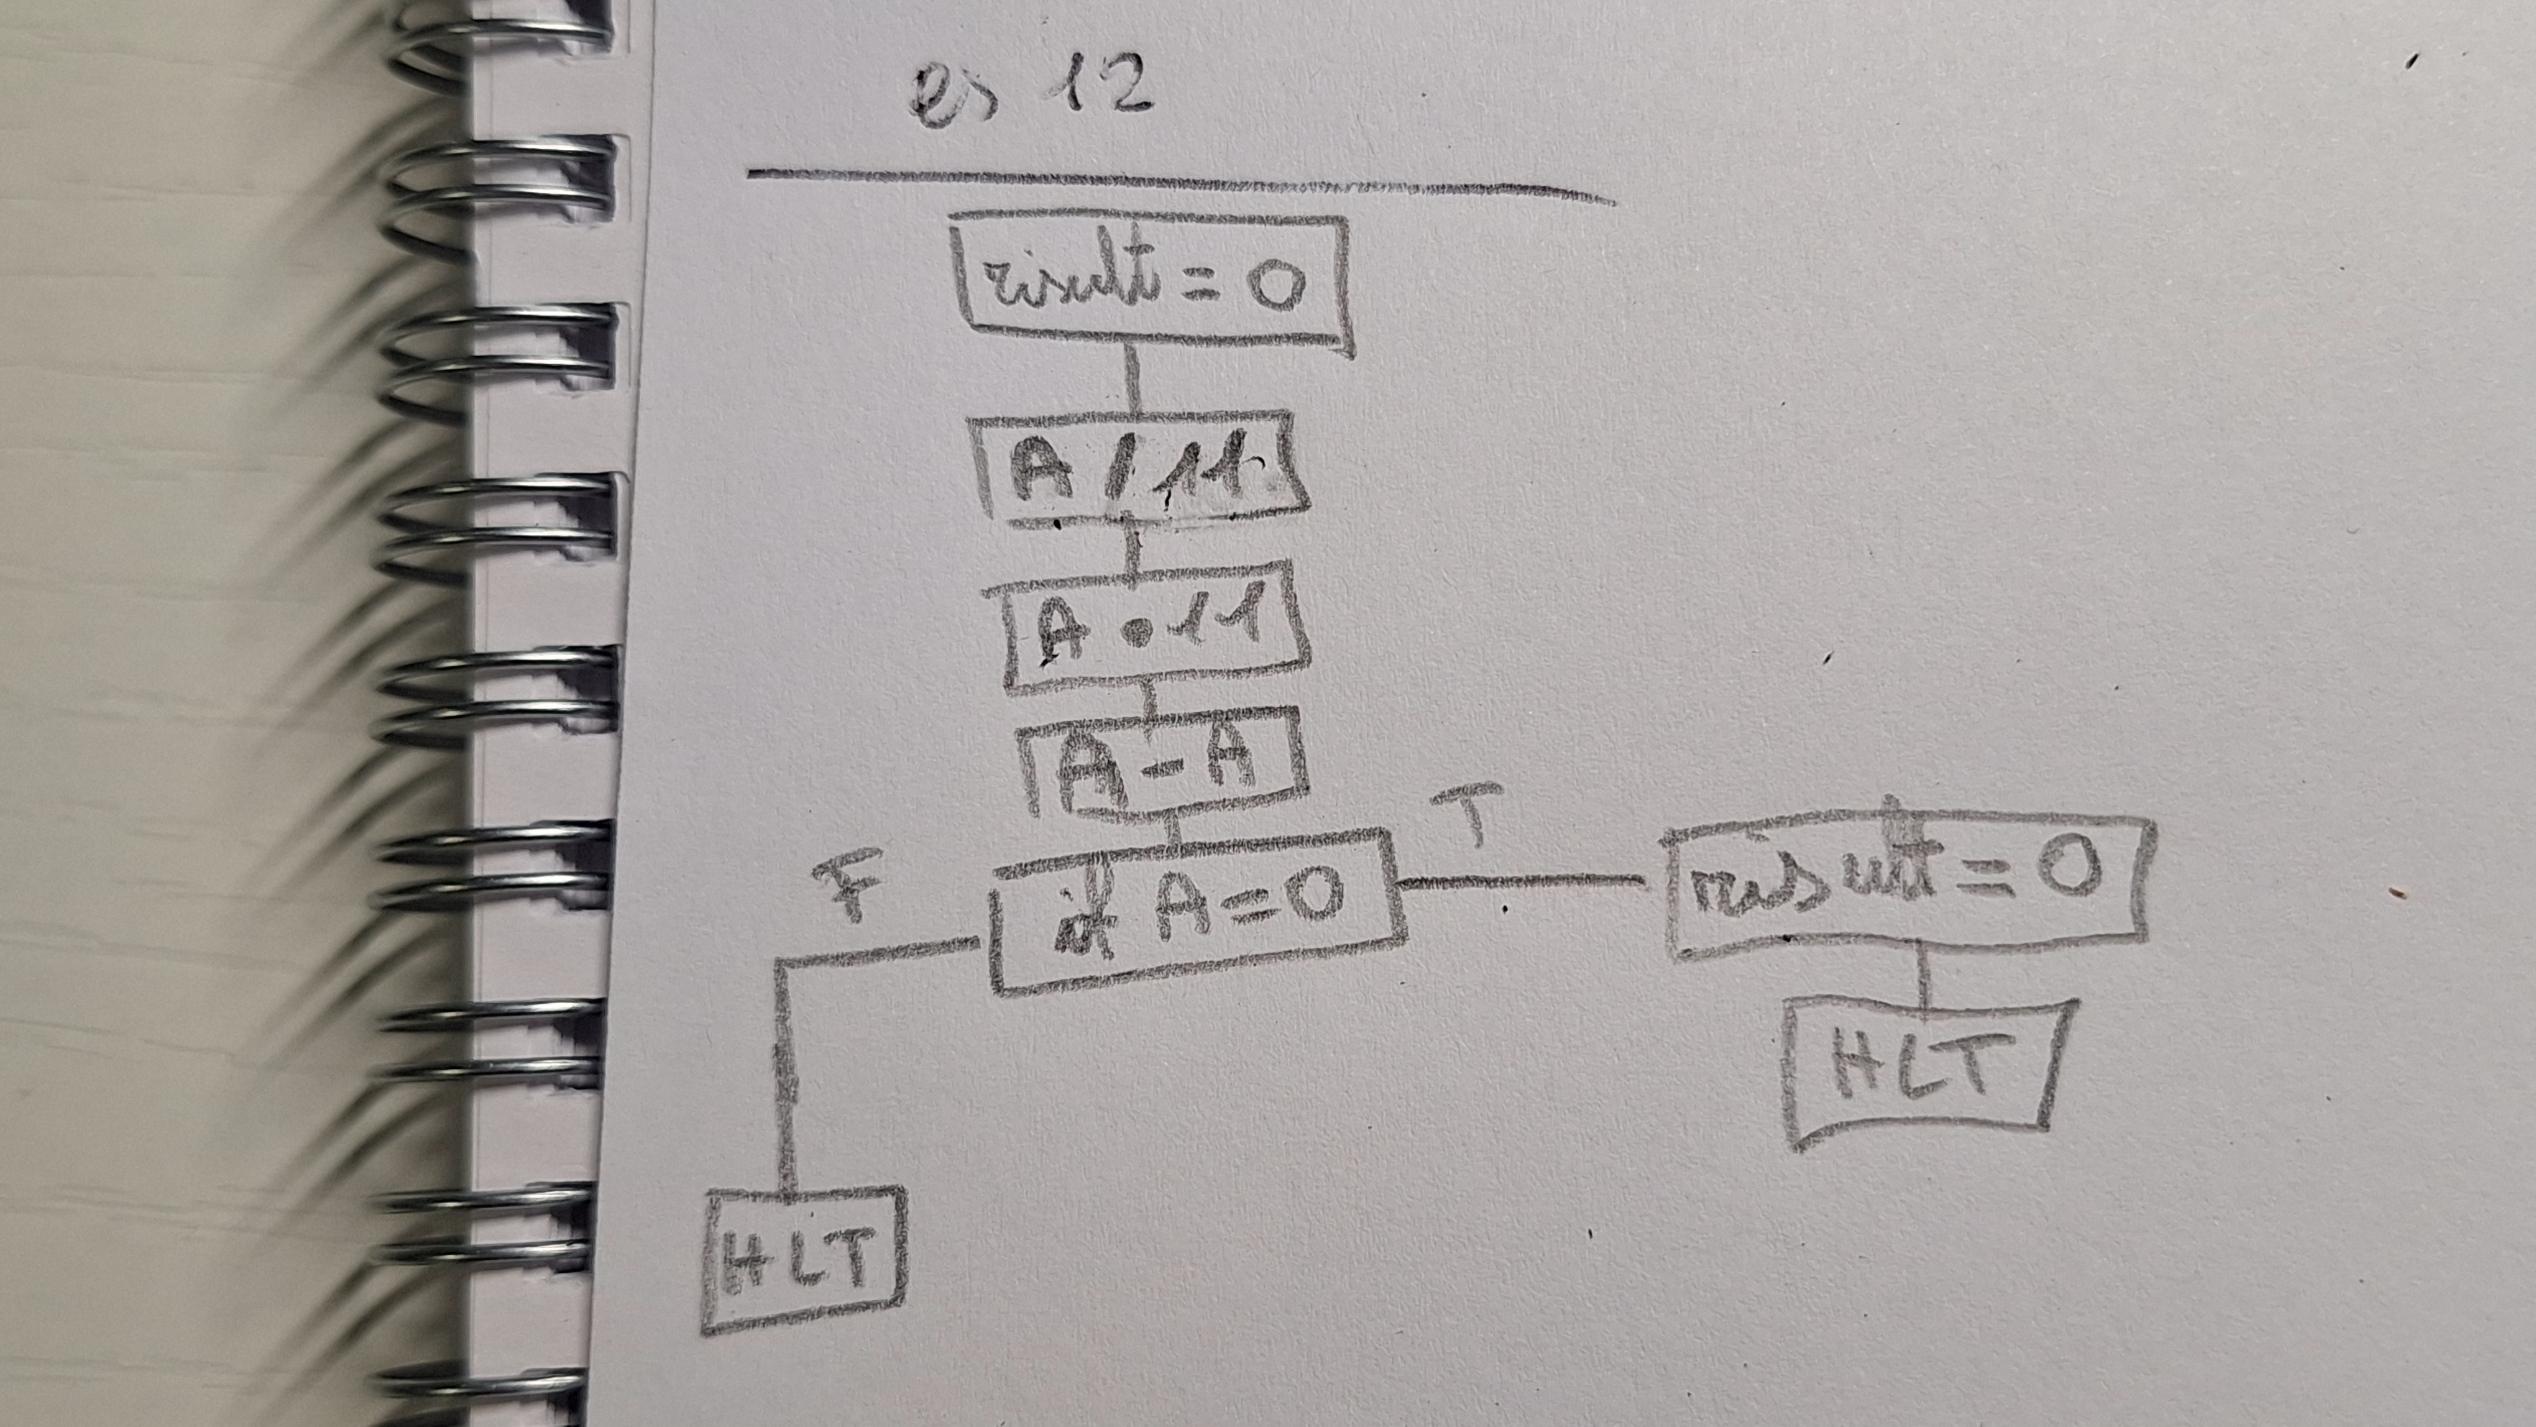 es 12
risult = 0
A / 11
A • 11
A - A
F
if A = 0
T
risult = 0
HLT
HLT